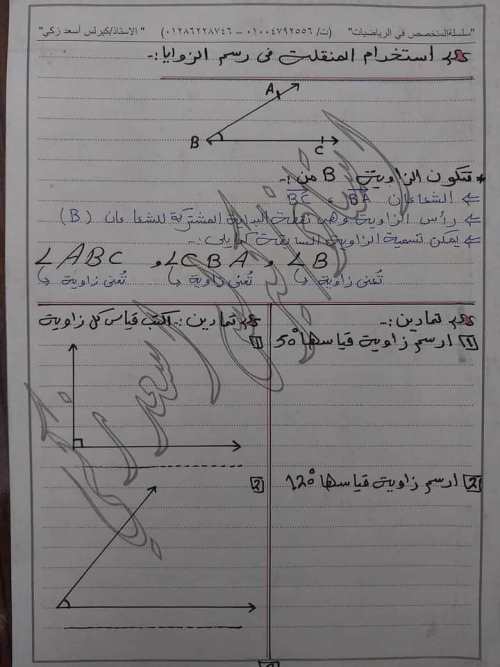 "سلسلة المتخصص في الرياضيات" (ت/ ٠١٠٠٤٧٩٢٥٥٦ - ٠١٢٨٦٢٢٨٧٤٦) "الاستاذ/كيرلس أسعد زكي"
استخدام المنقلة فى رسم الزوايا :-
A
B
C
* تتكون الزاوية B من :-
⇐ الشعاعان BA و BC
⇐ رأس الزاوية وهى نقطة البداية المشتركة للشعاعان (B)
⇐ يمكن تسمية الزاوية السابقة كما يلى :-
∠B و ∠CBA و ∠ABC
تُعنى زاوية تُعنى زاوية تُعنى زاوية
تمارين :-
1 ارسم زاوية قياسها 50°
2 ارسم زاوية قياسها 120°
تمارين :- اكتب قياس كل زاوية
1
2